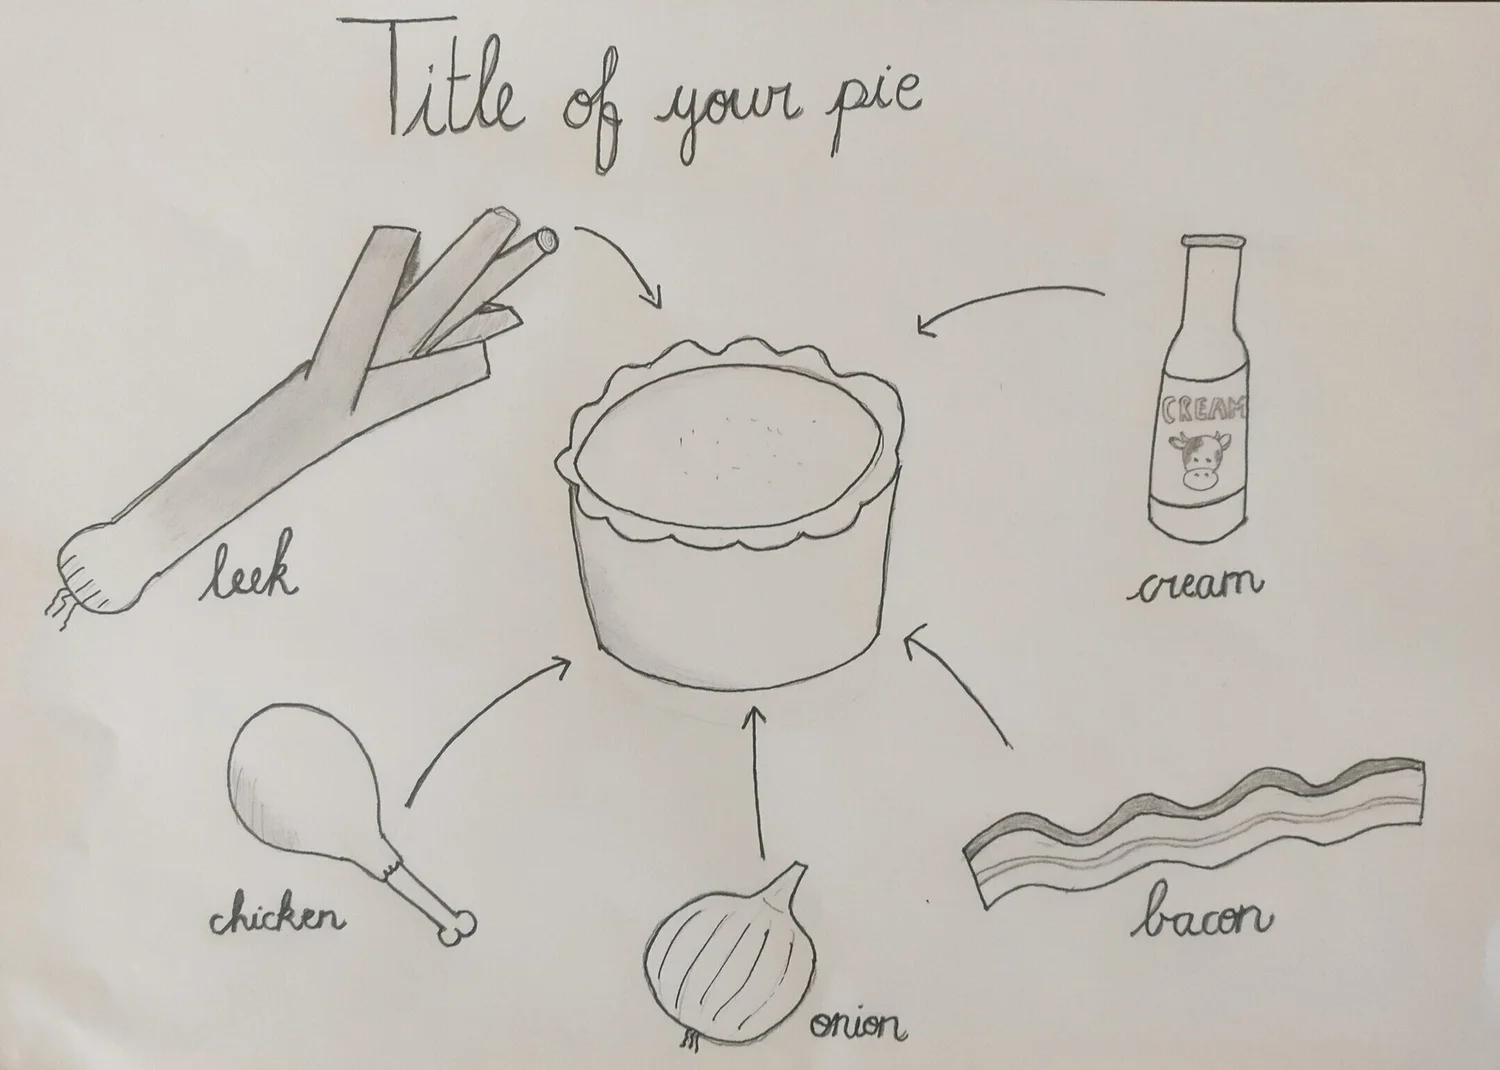 Title of your pie
CREAM
leek
cream
chicken
bacon
onion